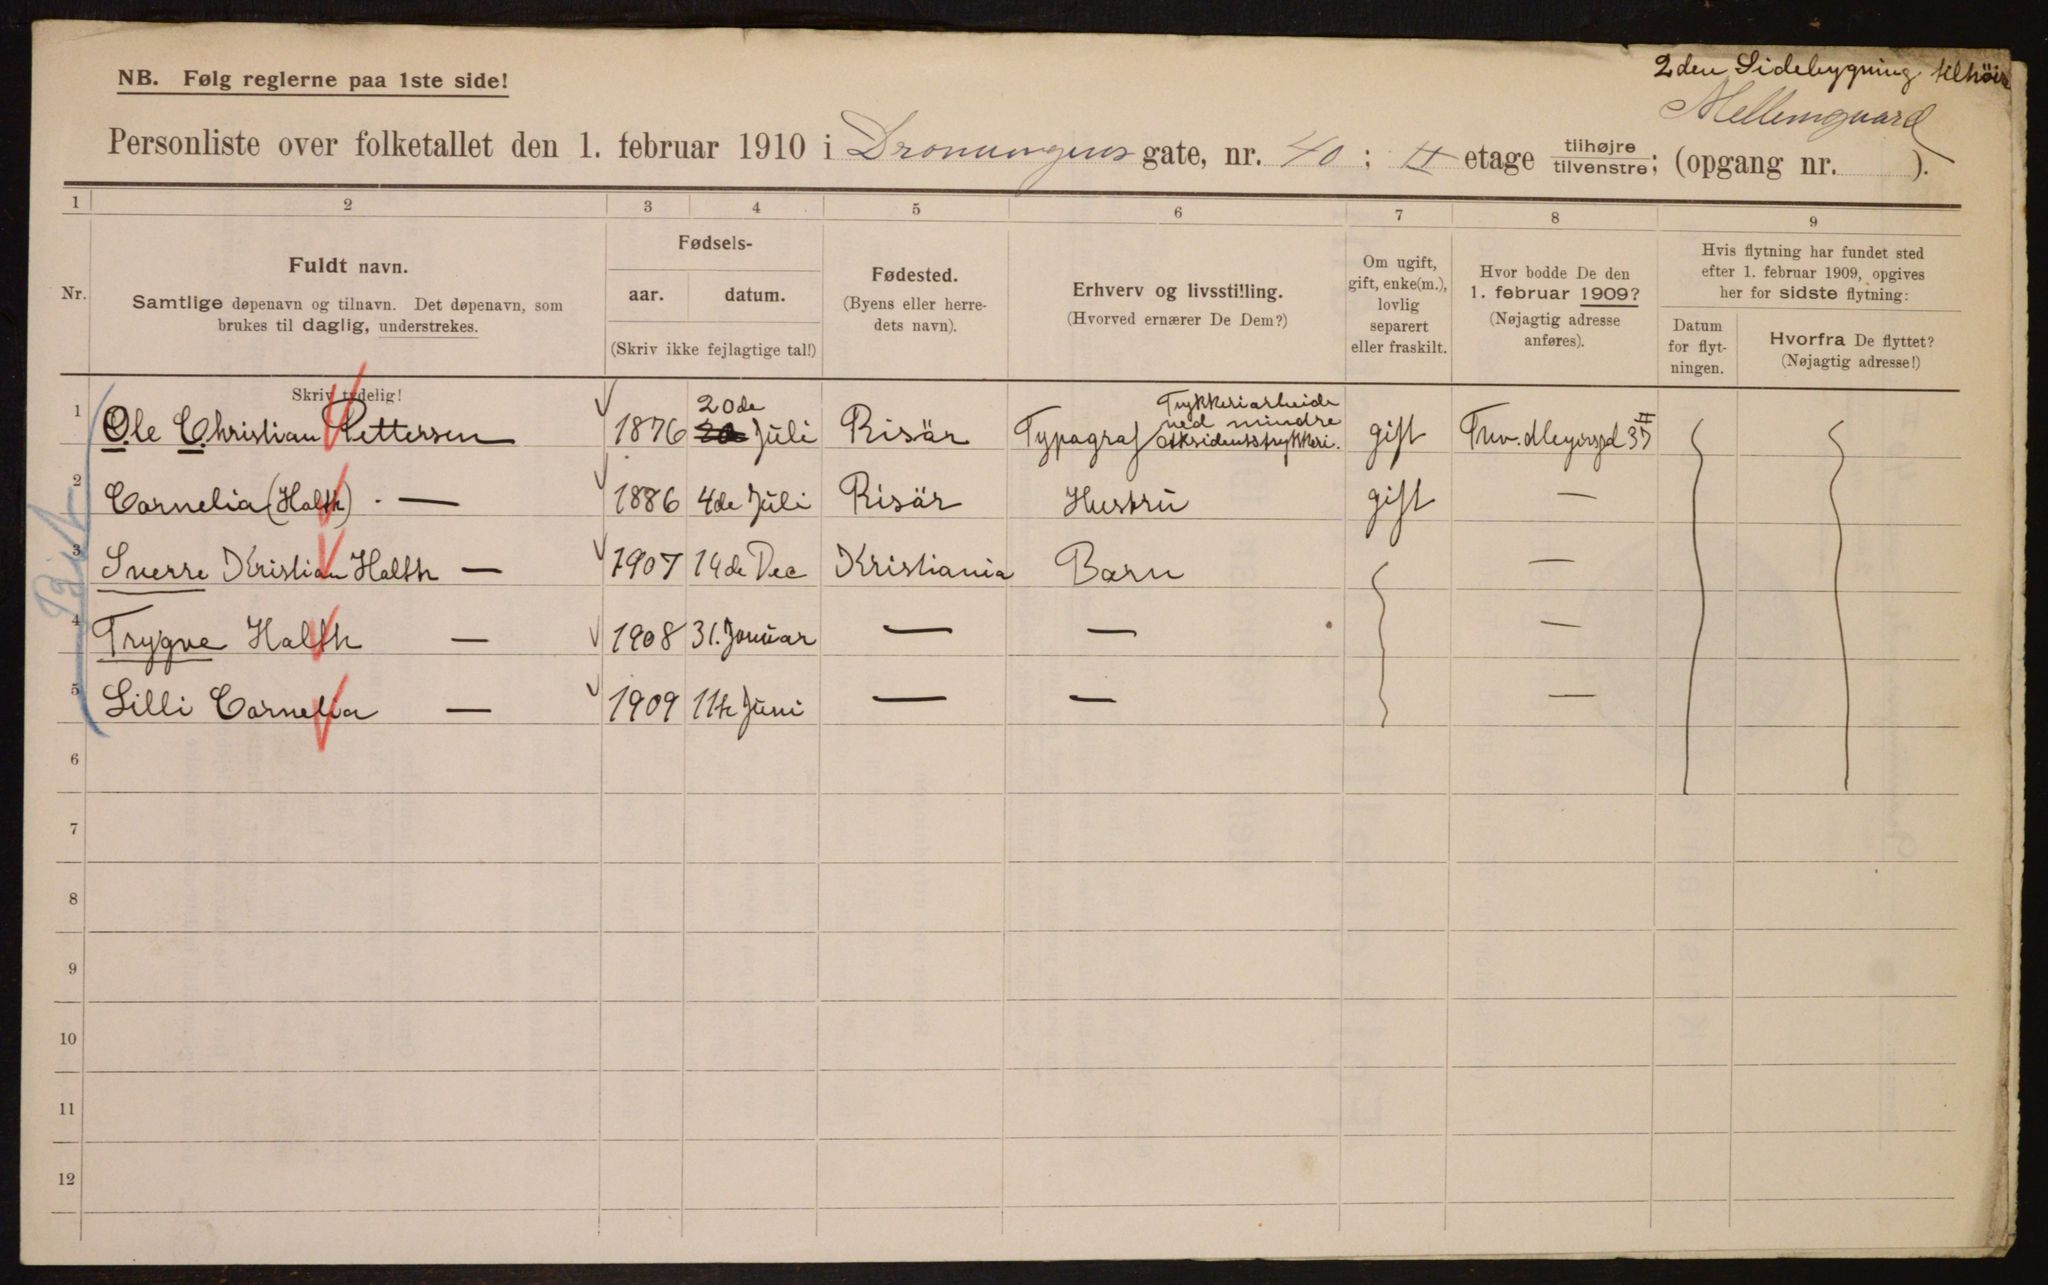 2den Sidebygning tilhöir
Mellemgaard
NB. Følg reglerne paa 1ste side!
Personliste over folketallet den 1. februar 1910 i Dronningens gate, nr. 40 ; II etage tilhøjre tilvenstre; (opgang nr. ).
1 2 3 4 5 6 7 8 9
Nr.
Fuldt navn.
Samtlige døpenavn og tilnavn. Det døpenavn, som
brukes til daglig, understrekes.
Skriv tydelig!
Fødsels-
aar. datum.
(Skriv ikke fejlagtige tal!)
Fødested.
(Byens eller herre-
dets navn).
Erhverv og livsstilling.
(Hvorved ernærer De Dem?)
Om ugift,
gift, enke(m.),
lovlig
separert
eller fraskilt.
Hvor bodde De den
1. februar 1909?
(Nøjagtig adresse
anføres).
Hvis flytning har fundet sted
efter 1. februar 1909, opgives
her for sidste flytning:
Datum
for flyt-
ningen.
Hvorfra De flyttet?
(Nøjagtig adresse!)
1 Ole Christian Pettersen 1876 20de 20 Juli Risär Typograf Trykkeriarbeide ved mindre gift 37 II
2 Cornelia (Halth) — 1886 4de Juli Risär Hustru gift —
3 Sverre Kristian Halth — 1907 14de Dec Kristiania Barn —
4 Trygve Halth — 1908 31. Januar — — —
5 Lilli Cornelia — 1909 11te Juni — — —
6
7
8
9
10
11
12